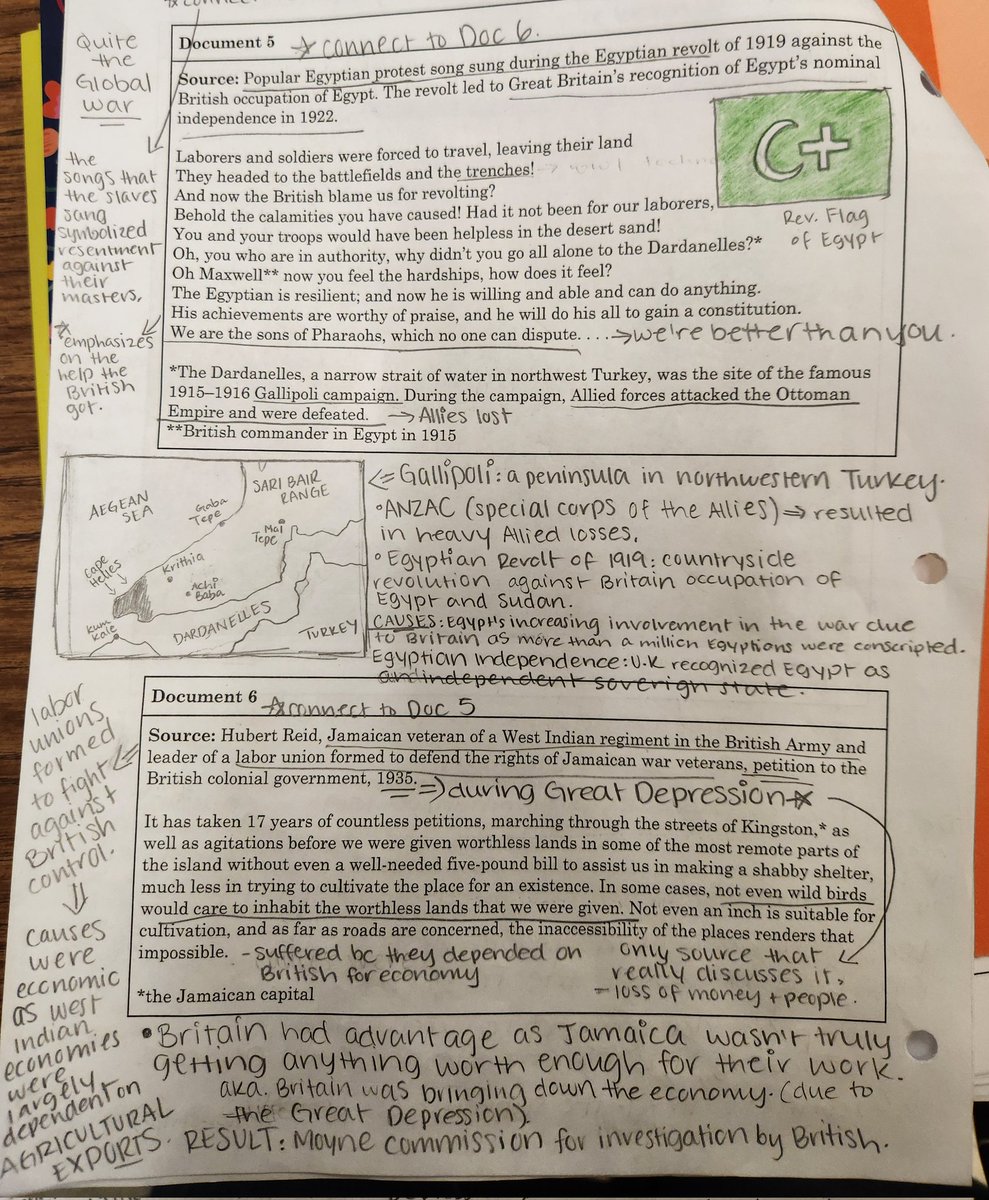 Quite
the
Global
war
Document 5 ☆ connect to Doc 6.
Source: Popular Egyptian protest song sung during the Egyptian revolt of 1919 against the
British occupation of Egypt. The revolt led to Great Britain's recognition of Egypt's nominal
independence in 1922.
the
songs that
the slaves
sang
symbolized
resentment
against
their
masters.
☆
emphasizes
on the
help the
British
got.
Laborers and soldiers were forced to travel, leaving their land
They headed to the battlefields and the trenches!
And now the British blame us for revolting?
Behold the calamities you have caused! Had it not been for our laborers,
You and your troops would have been helpless in the desert sand!
Oh, you who are in authority, why didn't you go all alone to the Dardanelles?*
Oh Maxwell** now you feel the hardships, how does it feel?
The Egyptian is resilient; and now he is willing and able and can do anything.
His achievements are worthy of praise, and he will do his all to gain a constitution.
We are the sons of Pharaohs, which no one can dispute. . . . → we're better than you.
Rev. Flag
of Egypt
*The Dardanelles, a narrow strait of water in northwest Turkey, was the site of the famous
1915–1916 Gallipoli campaign. During the campaign, Allied forces attacked the Ottoman
Empire and were defeated. → Allies lost
**British commander in Egypt in 1915
AEGEAN
SEA
SARI BAIR
RANGE
Gaba
Tepe
Mal
Tepe
Cape
Helles
Krithia
Achi
Baba
Kum
Kale
DARDANELLES
TURKEY
⇐ Gallipoli: a peninsula in northwestern Turkey.
• ANZAC (special corps of the Allies) ⇒ resulted
in heavy Allied losses.
• Egyptian Revolt of 1919: countryside
revolution against Britain occupation of
Egypt and Sudan.
CAUSES: Egypt's increasing involvement in the war due
to Britain as more than a million Egyptions were conscripted.
Egyptian Independence: U.K recognized Egypt as
an independent soverign state.
Document 6 ☆ connect to Doc 5
Source: Hubert Reid, Jamaican veteran of a West Indian regiment in the British Army and
leader of a labor union formed to defend the rights of Jamaican war veterans, petition to the
British colonial government, 1935. ⇒ during Great Depression ☆
It has taken 17 years of countless petitions, marching through the streets of Kingston,* as
well as agitations before we were given worthless lands in some of the most remote parts of
the island without even a well-needed five-pound bill to assist us in making a shabby shelter,
much less in trying to cultivate the place for an existence. In some cases, not even wild birds
would care to inhabit the worthless lands that we were given. Not even an inch is suitable for
cultivation, and as far as roads are concerned, the inaccessibility of the places renders that
impossible.
- suffered bc they depended on
British for economy
only source that
really discusses it,
- loss of money + people.
*the Jamaican capital
labor
unions
formed
to fight
against
British
control.
⇓
causes
were
economic
as west
indian
economies
were
largely
dependent on
AGRICULTURAL
EXPORTS.
• Britain had advantage as Jamaica wasn't truly
getting anything worth enough for their work.
aka. Britain was bringing down the economy. (due to
the Great Depression).
RESULT: Moyne commission for investigation by British.